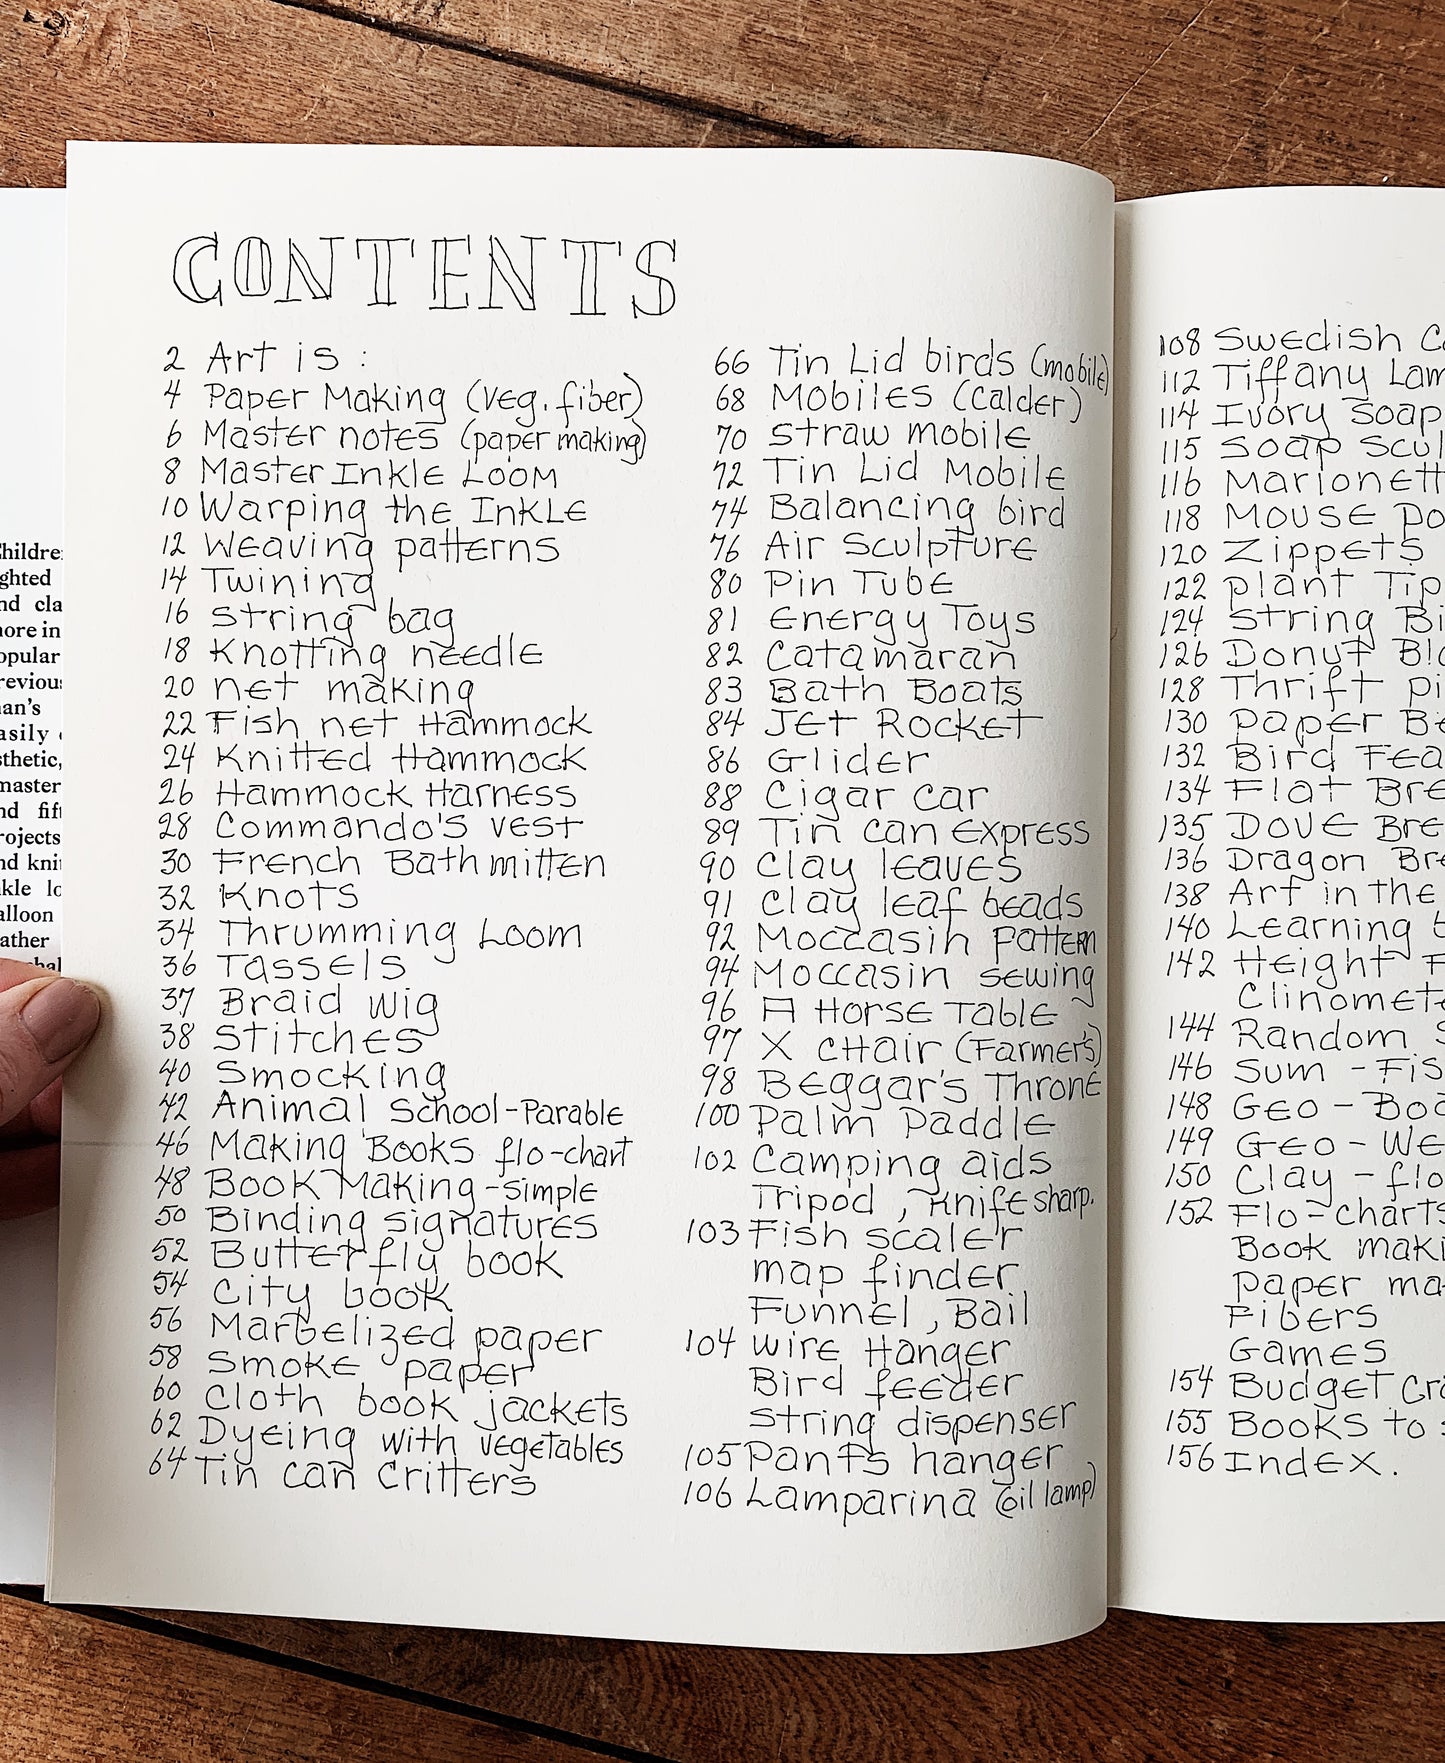 CONTENTS
2 Art is :
4 Paper Making (veg. fiber)
6 Master notes (paper making)
8 Master Inkle Loom
10 Warping the Inkle
12 Weaving patterns
14 Twining
16 String bag
18 Knotting needle
20 net making
22 Fish net Hammock
24 Knitted Hammock
26 Hammock Harness
28 Commando's vest
30 French Bath mitten
32 Knots
34 Thrumming Loom
36 Tassels
37 Braid wig
38 Stitches
40 Smocking
42 Animal School-Parable
46 Making Books flo-chart
48 Book Making-simple
50 Binding signatures
52 Butterfly book
54 City book
56 Marbelized paper
58 Smoke paper
60 Cloth book jackets
62 Dyeing with vegetables
64 Tin can Critters
66 Tin Lid birds (mobile)
68 Mobiles (Calder)
70 Straw mobile
72 Tin Lid Mobile
74 Balancing bird
76 Air Sculpture
80 Pin Tube
81 Energy Toys
82 Catamaran
83 Bath Boats
84 Jet Rocket
86 Glider
88 Cigar car
89 Tin can Express
90 Clay leaves
91 Clay leaf beads
92 Moccasin Pattern
94 Moccasin sewing
96 A Horse Table
97 X Chair (Farmer's)
98 Beggar's Throne
100 Palm Paddle
102 Camping aids
Tripod , Knife sharp.
103 Fish scaler
map finder
Funnel , Bail
104 Wire Hanger
Bird feeder
String dispenser
105 Pants hanger
106 Lamparina (oil lamp)
108 Swedish
112 Tiffany Lam
114 Ivory Soap
115 Soap Scul
116 Marionett
118 Mouse
120 Zippets
122 plant Tip
124 String
126 Donut
128 Thrift
130 Paper
132 Bird Fea
134 Flat Bre
135 Dove Bre
136 Dragon Bre
138 Art in the
140 Learning
142 Height
Clinomet
144 Random
146 Sum - Fis
148 Geo - Boa
149 Geo - We
150 Clay - flo
152 Flo-charts
Book maki
paper ma
Fibers
Games
154 Budget
155 Books to
156 Index.
Childre
ghted
nd cla
nore in
opular
reviou
an's
asily
sthetic,
master
nd fif
rojects
nd kni
kle lo
alloon
ather